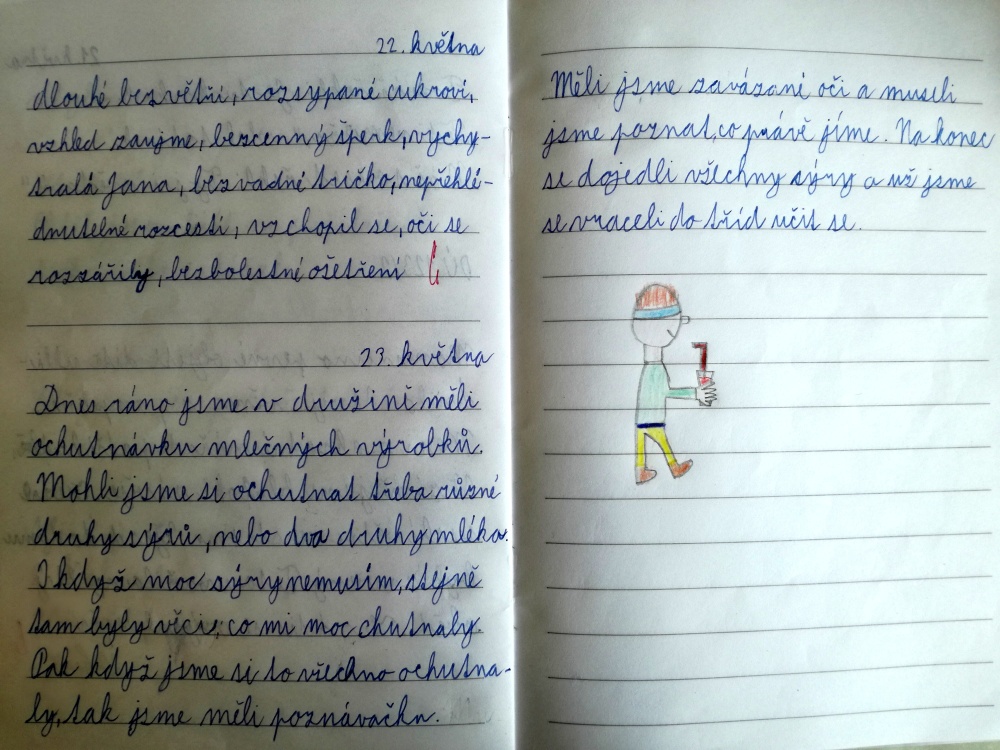 22. května
dlouhé bezvětří, rozsypané cukroví,
vzhled zaujme, bezcenný šperk, vychy-
tralá Jana, bezvadné tričko, nepřehlé-
dnutelné rozcestí, vzchopil se, oči se
rozzářily, bezbolestné ošetření
23. května
Dnes ráno jsme v družině měli
ochutnávku mlečných výrobků.
Mohli jsme si ochutnat třeba různé
druhy sýrů, nebo dva druhy mléka.
I když moc sýry nemusím, stejně
tam byly věci, co mi moc chutnaly.
Pak když jsme si to všechno ochutna-
ly, tak jsme měli poznávačku.
Měli jsme zavázané oči a museli
jsme poznat, co právě jíme. Na konec
se dojedli všechny sýry a už jsme
se vraceli do tříd učit se.